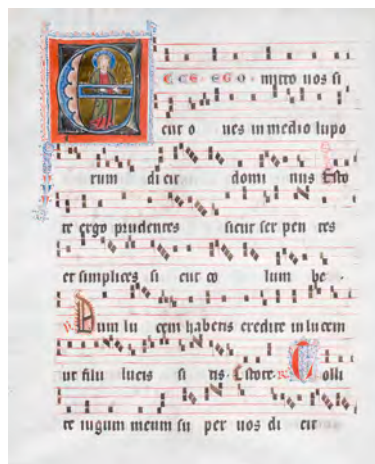 ECCE · EGO · mitto uos si
cut o ues in medio lupo
rum di cit domi nus Esto
te ergo prudentes sicut ser pen tes
et simplices si cut co lum be ·
V Dum lu cem habetis credite in lucem
ut filii lucis si tis · Estote · R Colli
te iugum meum su per uos di cit